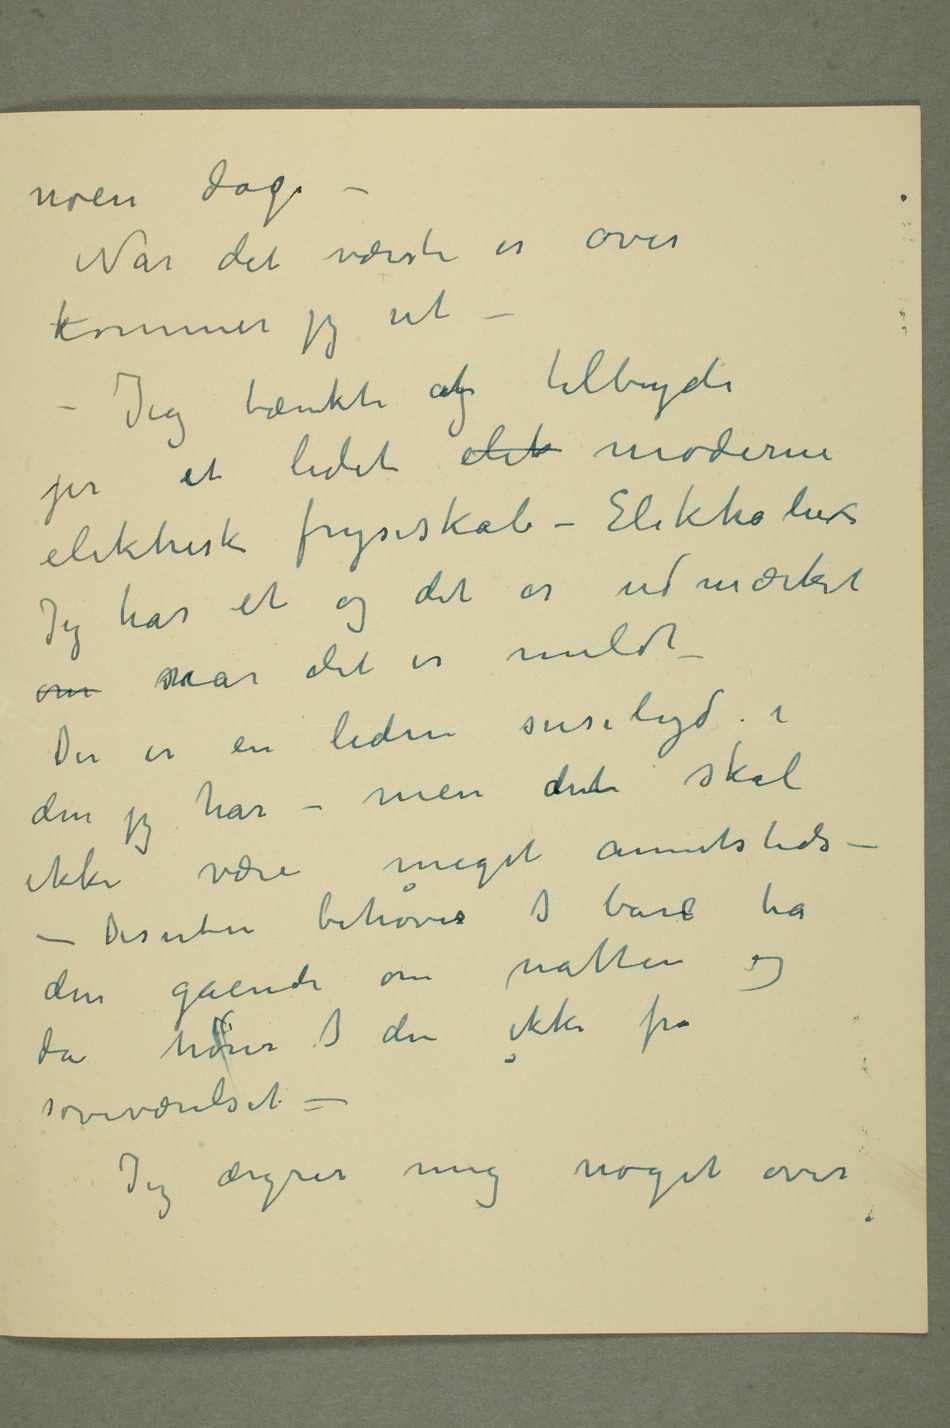 noen dage –
Når det værste er over
kommer jeg ut –
– Jeg tænkte at tilbyde
jer et lidet elek moderne
elektrisk fryseskab – Elektrolux
Jeg har et og det er udmærket
om når det er mildt –
Der er en liden suselyd i
den jeg har – men det skal
ikke være meget annetsteds –
– Desuten behøver I bare ha
den gående om natten og
da hører I den ikke fra
soveværelset –
Jeg ærgrer mig noget over